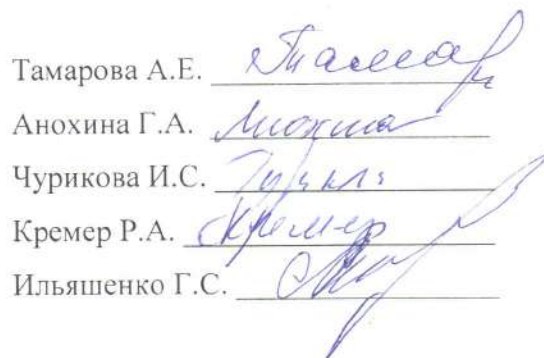 Тамарова А.Е.
Анохина Г.А.
Чурикова И.С.
Кремер Р.А. Кремер
Ильяшенко Г.С.